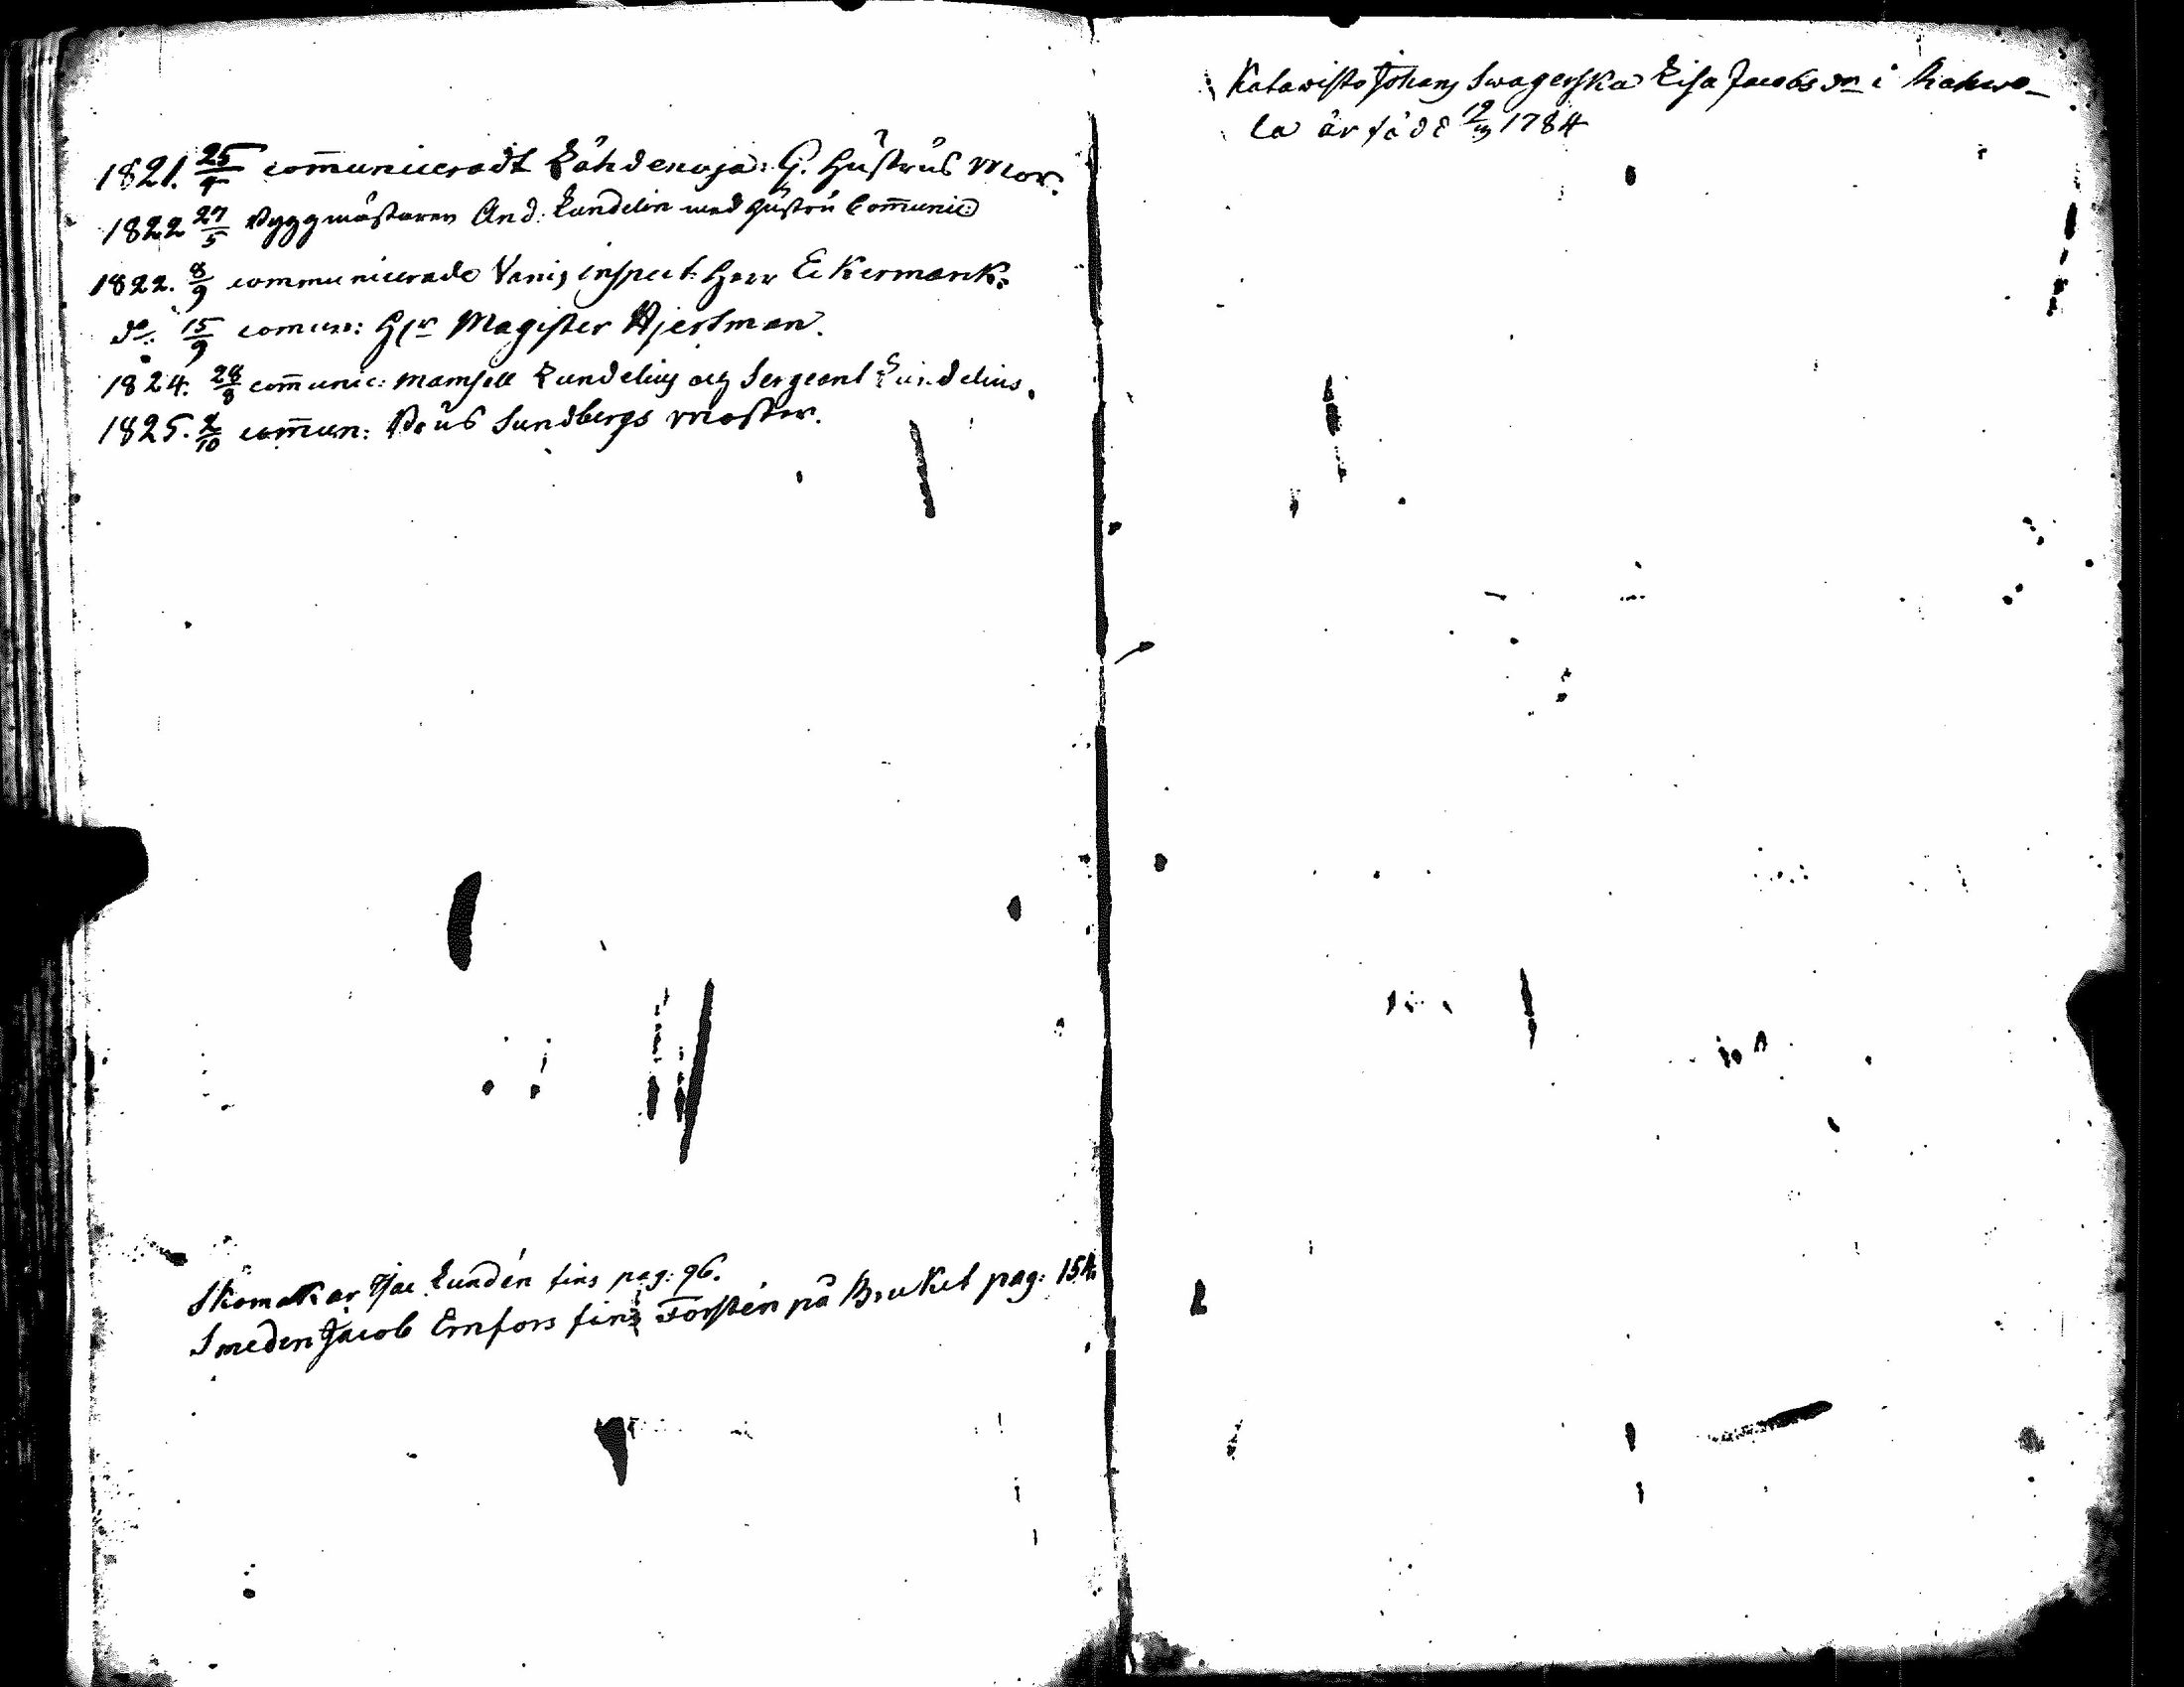 1821. 25/9 communiceradt Lähdenoja: G. Hustrus Mor.
1822 27/5 Byggmästaren And: Lundelin med Hustru Communic:
1822. 8/9 communicerade Vanis inspect: Herr Eckermark.
do: 15/9 comun: Hr Magister Hjertman.
1824. 28/8 communic: Mamsell Lundelius och Sergeant Lundelius.
1825. 2/10 commun: Sundbergs moster.
Skomakar Lundén fins pag: 96.
Smeden Jacob Ernfors fins Forstén på Bruket pag: 154.
Katawisto Johans Swagerska Lisa Jacobsdr i
la är född 12/3 1784